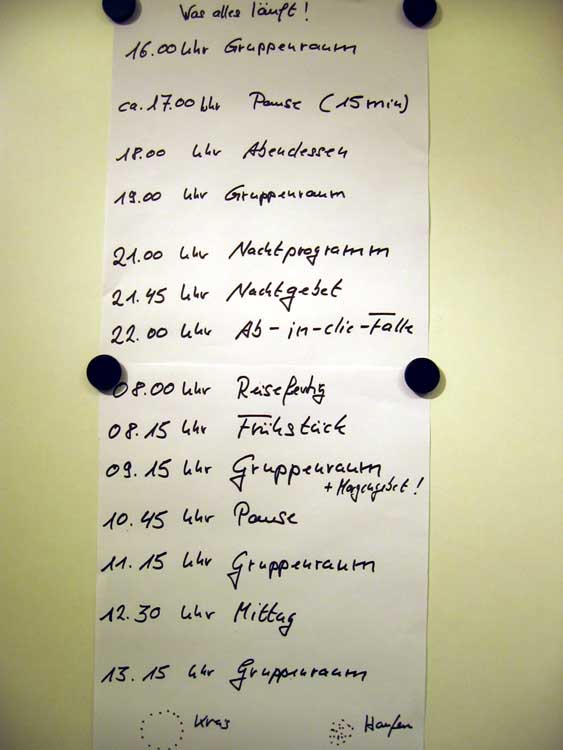 Was alles läuft!
16.00 Uhr Gruppenraum
ca. 17.00 Uhr Pause (15 min)
18.00 Uhr Abendessen
19.00 Uhr Gruppenraum
21.00 Uhr Nachtprogramm
21.45 Uhr Nachtgebet
22.00 Uhr Ab-in-die-Falle
08.00 Uhr Reisefertig
08.15 Uhr Frühstück
09.15 Uhr Gruppenraum
+ Morgengebet!
10.45 Uhr Pause
11.15 Uhr Gruppenraum
12.30 Uhr Mittag
13.15 Uhr Gruppenraum
Haufen